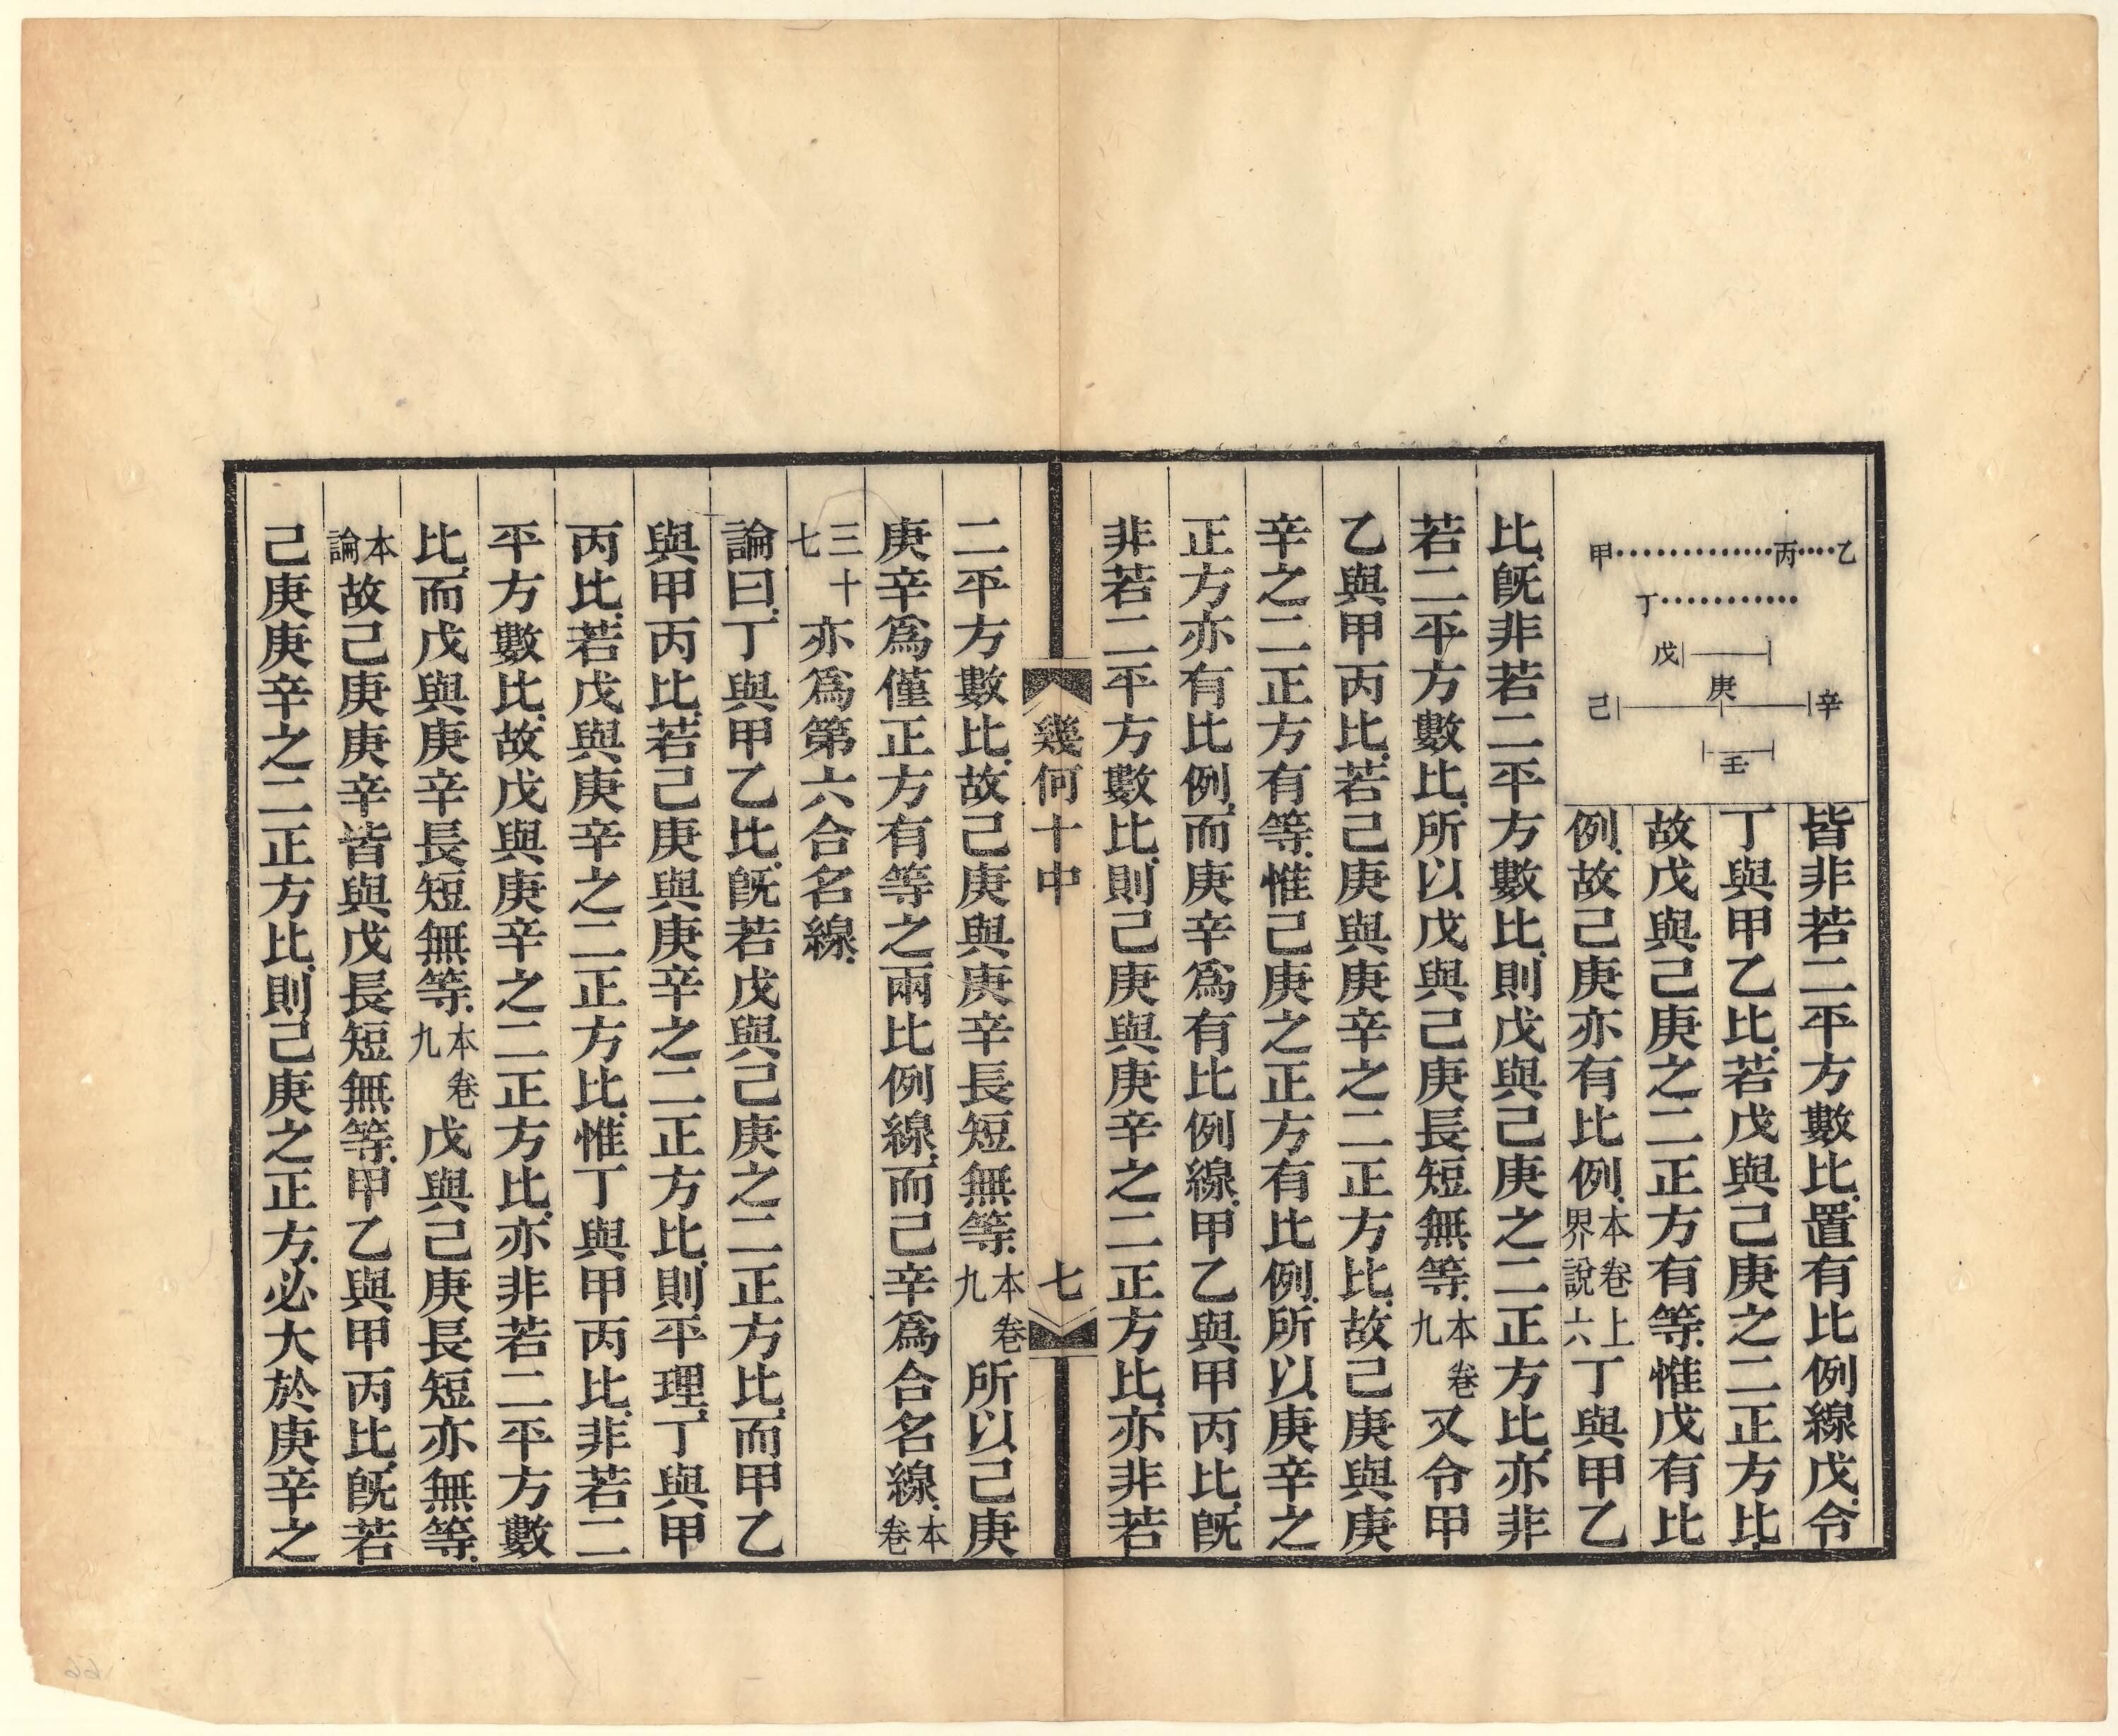 甲 丙 乙
丁
戊
己 庚 辛
壬
皆非若二平方數比.置有比例線戊.令
丁與甲乙比.若戊與己庚之二正方比.
故戊與己庚之二正方有等.惟戊有比
例.故己庚亦有比例.本卷上界說六丁與甲乙
比.旣非若二平方數比.則戊與己庚之二正方比.亦非
若二平方數比.所以戊與己庚長短無等.本卷九又令甲
乙與甲丙比.若己庚與庚辛之二正方比.故己庚與庚
辛之二正方有等.惟己庚之正方有比例.所以庚辛之
正方亦有比例.而庚辛爲有比例線.甲乙與甲丙比.旣
非若二平方數比.則己庚與庚辛之二正方比.亦非若
幾何十中 七
二平方數比.故己庚與庚辛長短無等.本卷九所以己庚
庚辛爲僅正方有等之兩比例線.而己辛爲合名線.本卷
三十七亦爲第六合名線.
論曰.丁與甲乙比.旣若戊與己庚之二正方比.而甲乙
與甲丙比.若己庚與庚辛之二正方比.則平理.丁與甲
丙比.若戊與庚辛之二正方比.惟丁與甲丙比.非若二
平方數比.故戊與庚辛之二正方比.亦非若二平方數
比.而戊與庚辛長短無等.本卷九戊與己庚長短亦無等.
本論故己庚庚辛皆與戊長短無等.甲乙與甲丙比.旣若
己庚庚辛之二正方比.則己庚之正方.必大於庚辛之
66